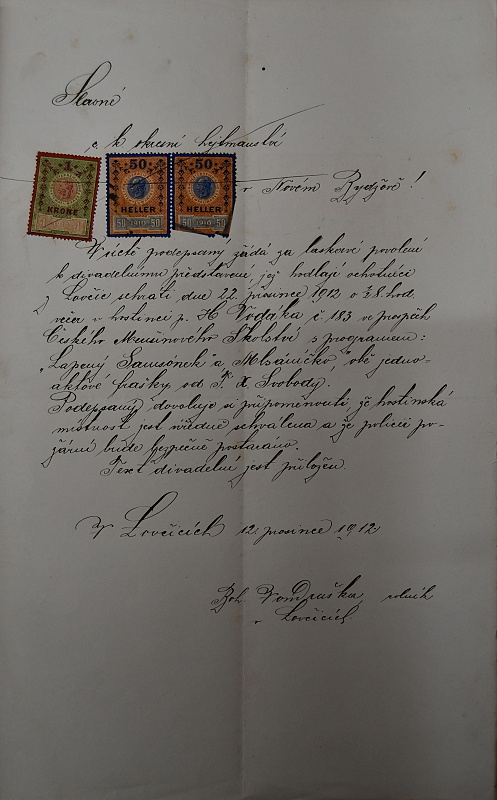 Slavné
c k okresní hejtmanství
1
KRONE
50 50
HELLER HELLER
50 1910 50 50 1910 50
v Novém Bydžově!
Uctivě podepsaný žádá za laskavé povolení
k divadelnímu představení, jež hodlají ochotníci
z Lovčic sehráti dne 22. prosince 1912 o ½8. hod.
večer v hostinci p. H. Vodáka č. 183 ve prospěch
Českého Menšinového Školství s programem:
„Lapený Samsónek" a Mlsáníčko," obě jedno-
aktové frašky od F. X. Svobody.
Podepsaný dovoluje si připomenouti že hostinská
místnost jest úředně schválena a že policií po-
žární bude bezpečně postaráno.
Text divadelní jest přiložen.
V Lovčicích 12. prosince 1912
Boh. Vondruška rolník
v Lovčicích.